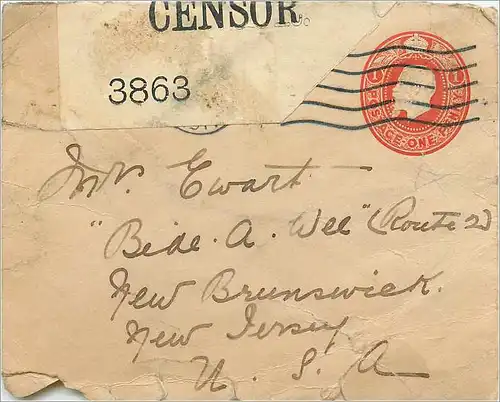 CENSOR
3863
1 1
POSTAGE·ONE PENNY
Mr. Ewart
"Bide. A. Wee" (Route 2)
New Brunswick.
New Jersey
U. S. A